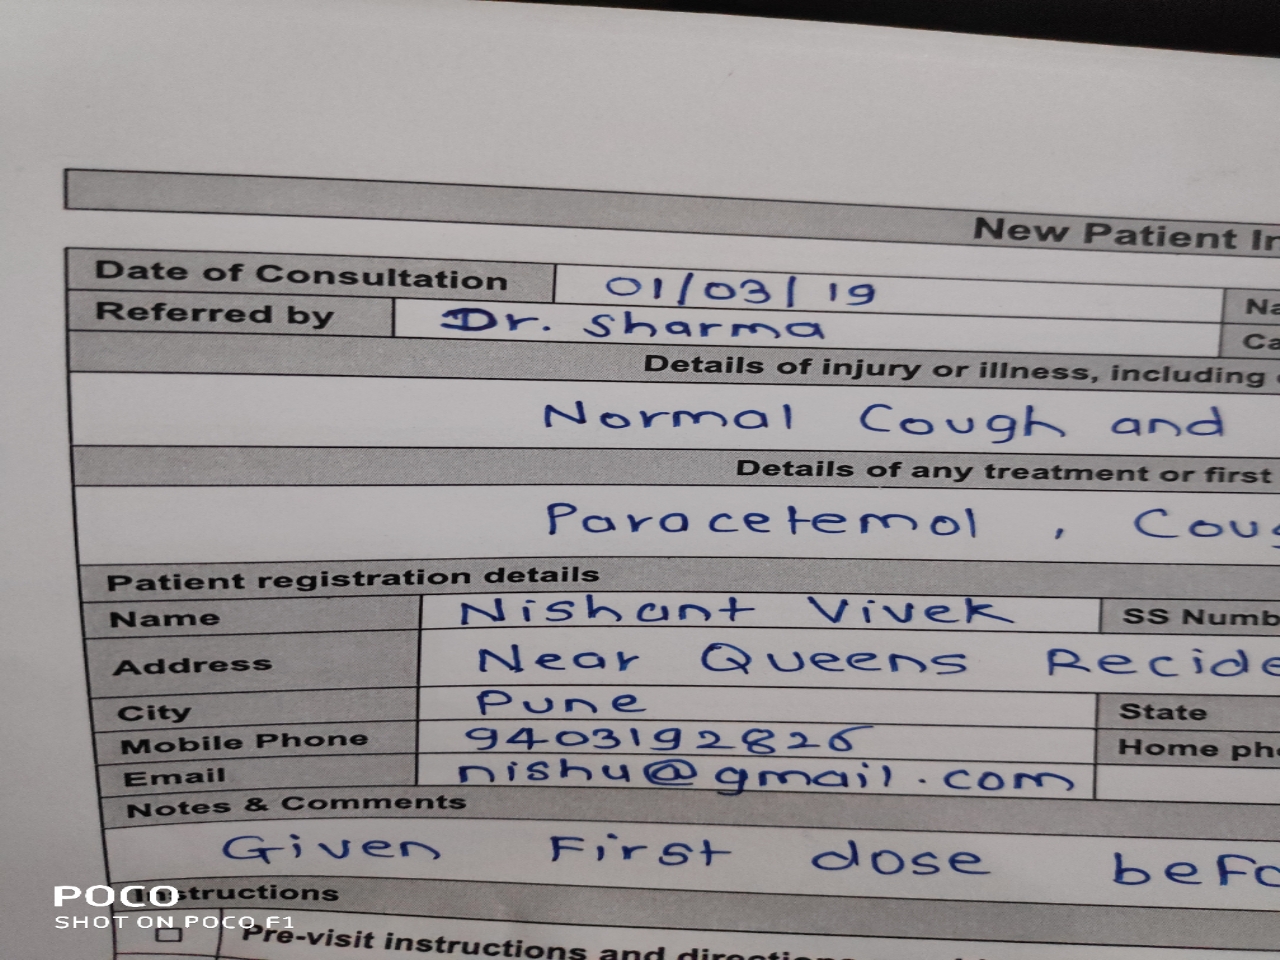 New Patient
Date of Consultation 01/03/19
Referred by Dr. Sharma
Details of injury or illness, including
Normal Cough and
Details of any treatment or first
Paracetemol ,
Patient registration details
Name Nishant Vivek SS
Address Near Queens
City Pune State
Mobile Phone 9403192826 Home
Email nishu@gmail.com
Notes & Comments
Given First dose
Instructions
Pre-visit instructions and
POCO
SHOT ON POCO F1